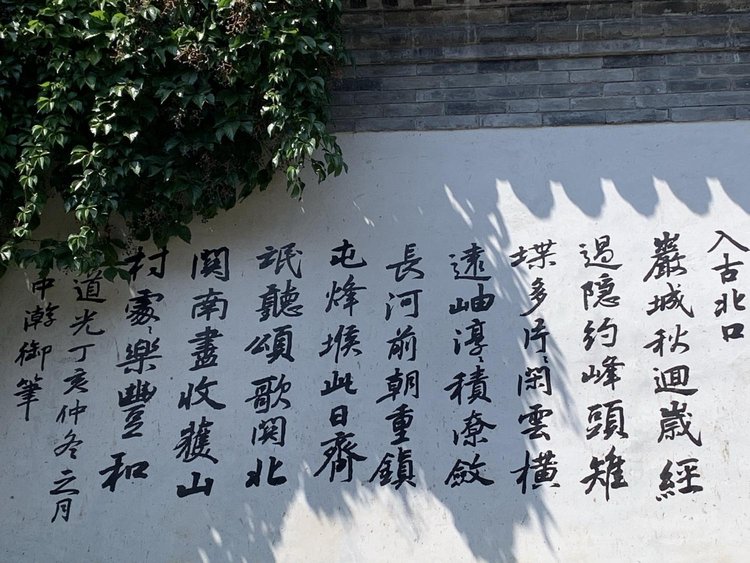 入古北口
巖城秋迴歲經
過隐約峰頭雉
堞多片〻閑雲橫
遠岫淳〻積潦斂
長河前朝重鎮
屯烽堠此日齊
氓聽頌歌関北
関南盡收穫山
村處〻樂豐和
道光丁亥仲冬之月
中澣御筆